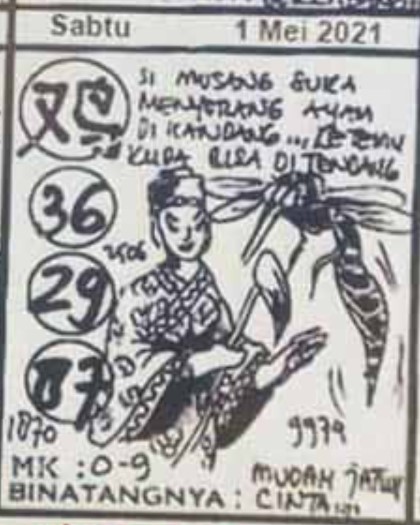 Sabtu 1 Mei 2021
鸡
SI MUSANG SUKA
MENYERANG AYAM
DI KANDANG... KETEMU
KUDA BISA DITENDANG
36
2506
29
87
1870
9979
MK : 0-9
MUDAH JATUH
BINATANGNYA : CINTA...